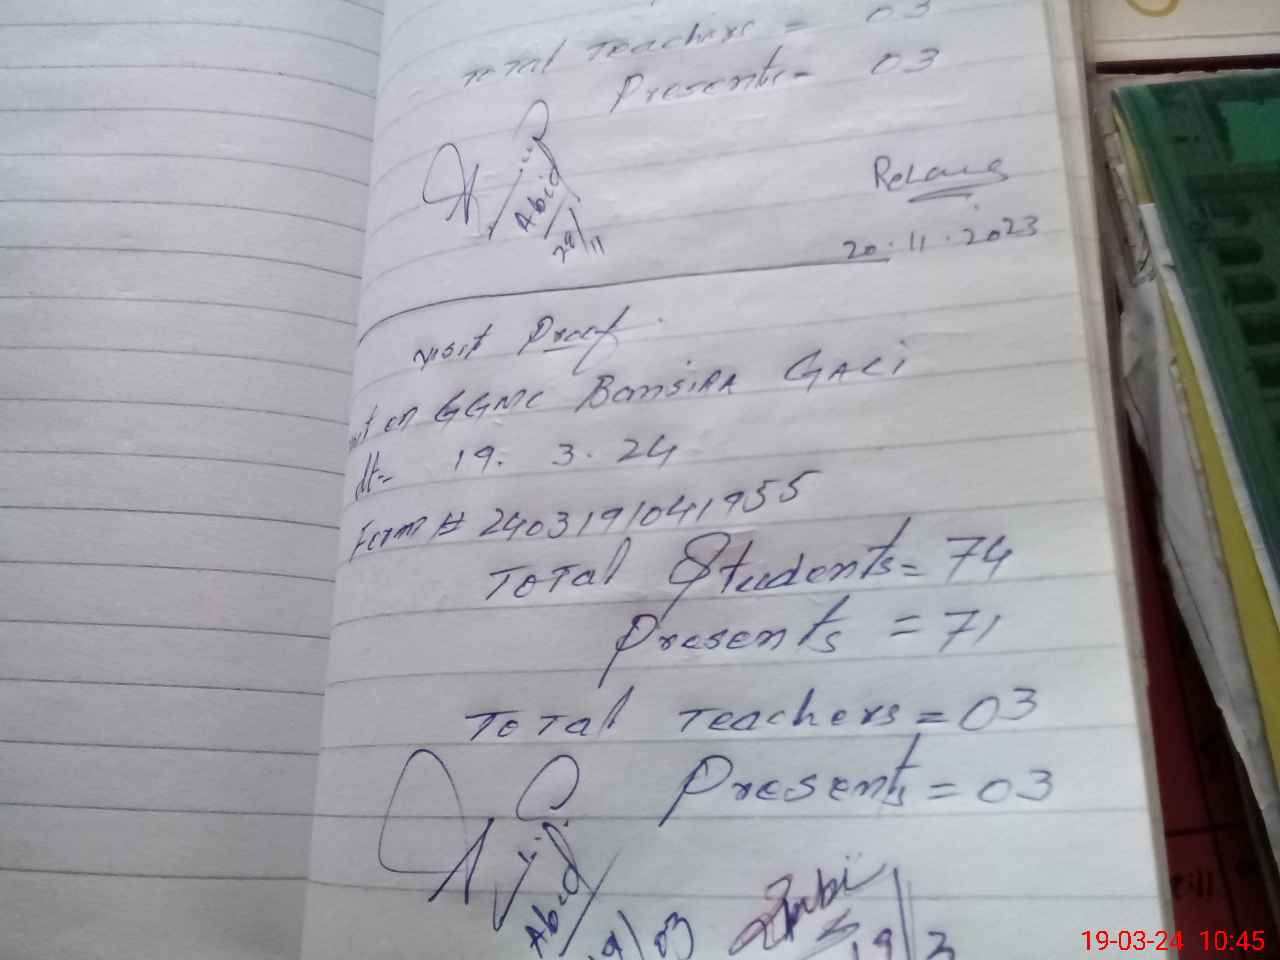 Total Teachers = 03
Presents = 03
Abid
29/11
Rehana
20.11.2023
Visit Proof
visit on GGMC Bamsira GALi
dt- 19. 3. 24
Form # 2403191041955
Total Students = 74
Presents = 71
Total Teachers = 03
Presents = 03
Abid
19/03
19/3
19-03-24 10:45